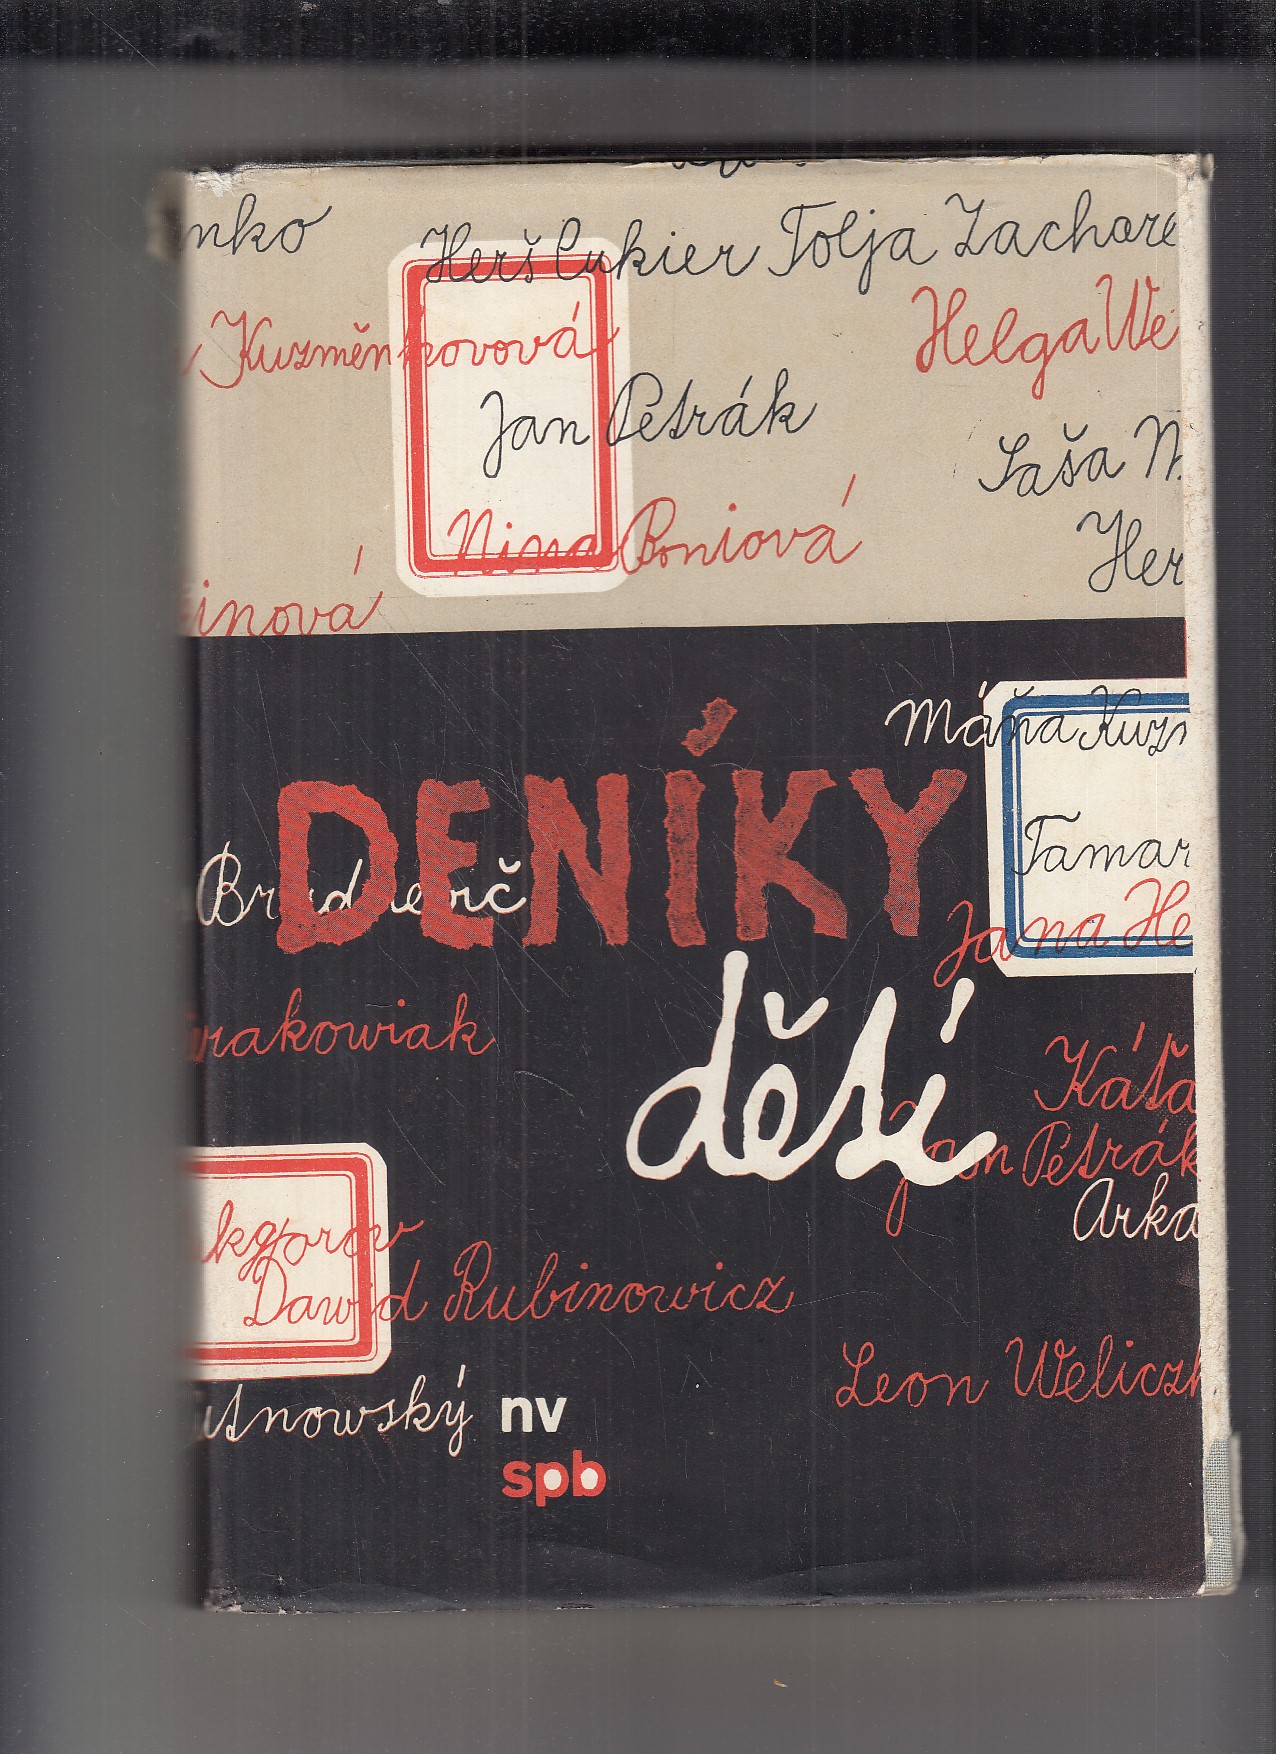 nko
Herš Cukier Tolja Zachare
Kuzměnkovová
Helga We
Jan Petrák
Saša
Nina Boniová
Her
inová
Máňa Kuz
DENÍKY
Tamar
Jana He
dětí
rakowiak
Káťa
Jan Petrák
Arka
kgorov
Dawid Rubinowicz
Leon Welicz
utnowský
nv
spb